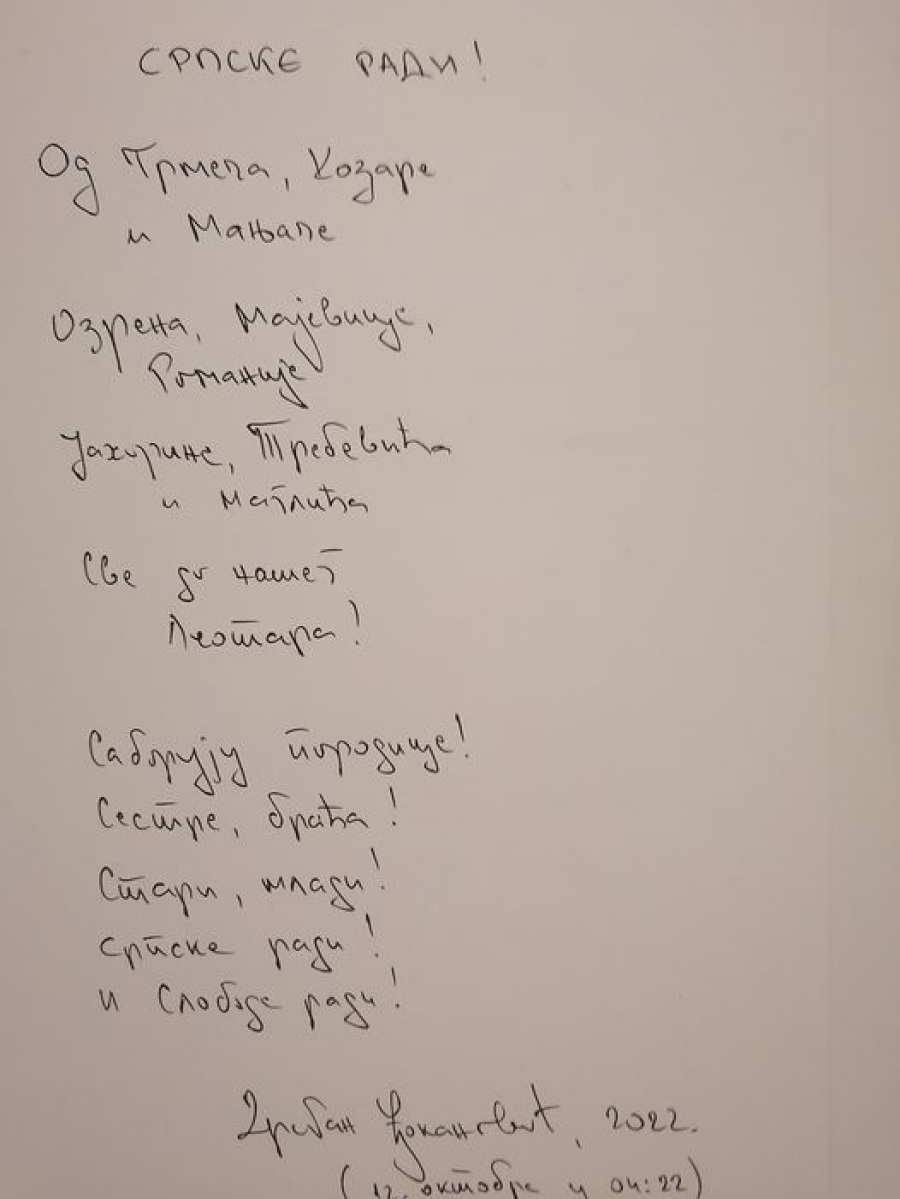 СРПСКЕ РАДИ!
Од Грмеча, Козаре
и Мањаче
Озрена, Мајевице,
Романије
Јахорине, Требевића
и Маглића
Све до нашег
Леотара!
Саборују породице!
Сестре, браћа!
Стари, млади!
Српске ради!
и Слободе ради!
, 2022.
(12. октобра у 04:22)